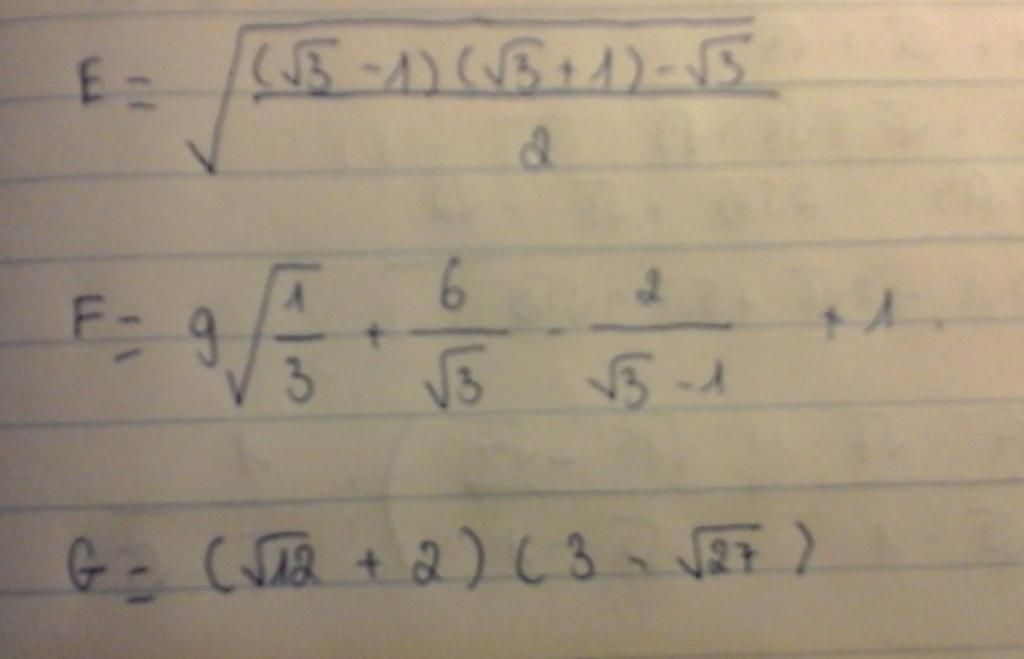 E = √(((√3 - 1)(√3 + 1) - √3) / 2)
F = 9√(1/3) + 6/√3 - 2/(√3 - 1) + 1
G = (√12 + 2)(3 - √27)